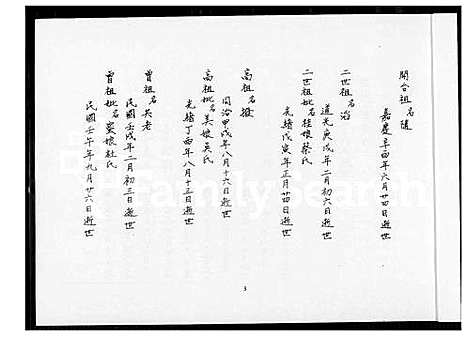 開台祖名隨
嘉慶辛酉年六月廿四日逝世
二世祖名治
道光庚戌年二月初六日逝世
二世祖妣名桂娘蔡氏
光緒戊寅年正月廿四日逝世
高祖名發
同治甲戌年八月十六日逝世
高祖妣名美娘吳氏
光緒丁酉年八月十三日逝世
曾祖名天老
民國壬戌年二月初三日逝世
曾祖妣名蜜娘杜氏
民國壬午年九月廿六日逝世
3
FamilySearch